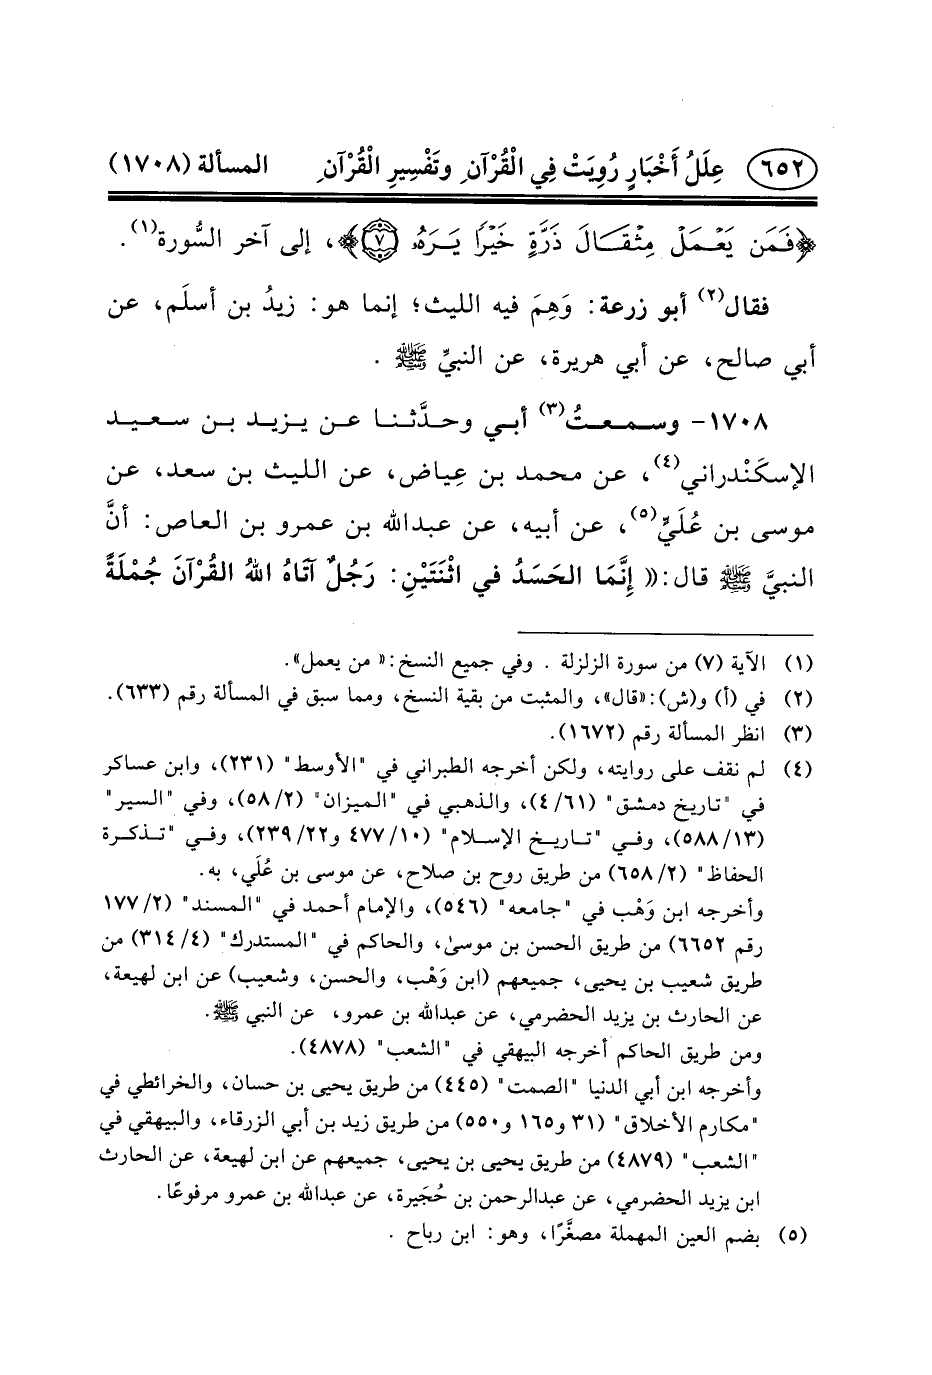 ٦٥٢ عِلَلُ أَخْبَارٍ رُوِيَتْ فِي الْقُرْآنِ وتَفْسِيرِ الْقُرْآنِ المسألة (١٧٠٨)
﴿فَمَن يَعْمَلْ مِثْقَالَ ذَرَّةٍ خَيْرًا يَرَهُ ۝٧﴾، إلى آخر السُّورة(١).
فقال(٢) أبو زرعة: وَهِمَ فيه الليث؛ إنما هو: زيدُ بن أسلَم، عن
أبي صالح، عن أبي هريرة، عن النبيِّ ﷺ .
١٧٠٨- وسمعتُ(٣) أبي وحدَّثنا عن يزيد بن سعيد
الإسكَنْدراني(٤)، عن محمد بن عِياض، عن الليث بن سعد، عن
موسى بن عُلَيٍّ(٥)، عن أبيه، عن عبدالله بن عمرو بن العاص: أنَّ
النبيَّ ﷺ قال:« إِنَّمَا الحَسَدُ في اثْنَتَيْنِ: رَجُلٌ آتَاهُ اللهُ القُرْآنَ جُمْلَةً
(١) الآية (٧) من سورة الزلزلة . وفي جميع النسخ:« من يعمل».
(٢) في (أ) و(ش):«قال»، والمثبت من بقية النسخ، ومما سبق في المسألة رقم (٦٣٣).
(٣) انظر المسألة رقم (١٦٧٢).
(٤) لم نقف على روايته، ولكن أخرجه الطبراني في "الأوسط" (٢٣١)، وابن عساكر
في "تاريخ دمشق" (٤/٦١)، والذهبي في "الميزان" (٥٨/٢)، وفي "السير"
(٥٨٨/١٣)، وفي "تاريخ الإسلام" (٤٧٧/١٠ و٢٣٩/٢٢)، وفي "تذكرة
الحفاظ" (٦٥٨/٢) من طريق روح بن صلاح، عن موسى بن عُلَي، به.
وأخرجه ابن وَهْب في "جامعه" (٥٤٦)، والإمام أحمد في "المسند" (١٧٧/٢
رقم ٦٦٥٢) من طريق الحسن بن موسىٰ، والحاكم في "المستدرك" (٣١٤/٤) من
طريق شعيب بن يحيى، جميعهم (ابن وَهْب، والحسن، وشعيب) عن ابن لهيعة،
عن الحارث بن يزيد الحضرمي، عن عبدالله بن عمرو، عن النبي ﷺ.
ومن طريق الحاكم أخرجه البيهقي في "الشعب" (٤٨٧٨).
وأخرجه ابن أبي الدنيا "الصمت" (٤٤٥) من طريق يحيى بن حسان، والخرائطي في
"مكارم الأخلاق" (٣١ و١٦٥ و٥٥٠) من طريق زيد بن أبي الزرقاء، والبيهقي في
"الشعب" (٤٨٧٩) من طريق يحيى بن يحيى، جميعهم عن ابن لهيعة، عن الحارث
ابن يزيد الحضرمي، عن عبدالرحمن بن حُجَيرة، عن عبدالله بن عمرو مرفوعًا.
(٥) بضم العين المهملة مصغَّرًا، وهو: ابن رباح .